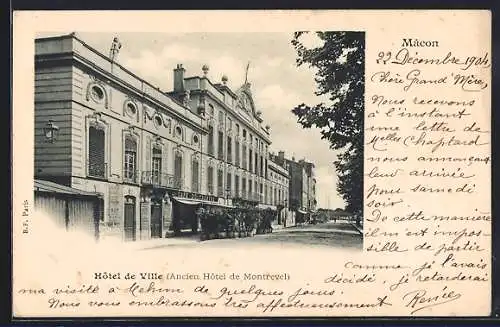 Mâcon
22 Décembre 1904
Chère Grand'Mère,
Nous recevons
à l'instant
une lettre de
Melles Chaptard
nous annonçant
leur arrivée
pour samedi
soir.
De cette manière
il m'est impos
sible de partir
comme je l'avais
décidé, je retarderai
ma visite à Mehun de quelques jours.
Nous vous embrassons très affectueusement
Renée
Hôtel de Ville (Ancien Hôtel de Montrevel)
B.F. Paris